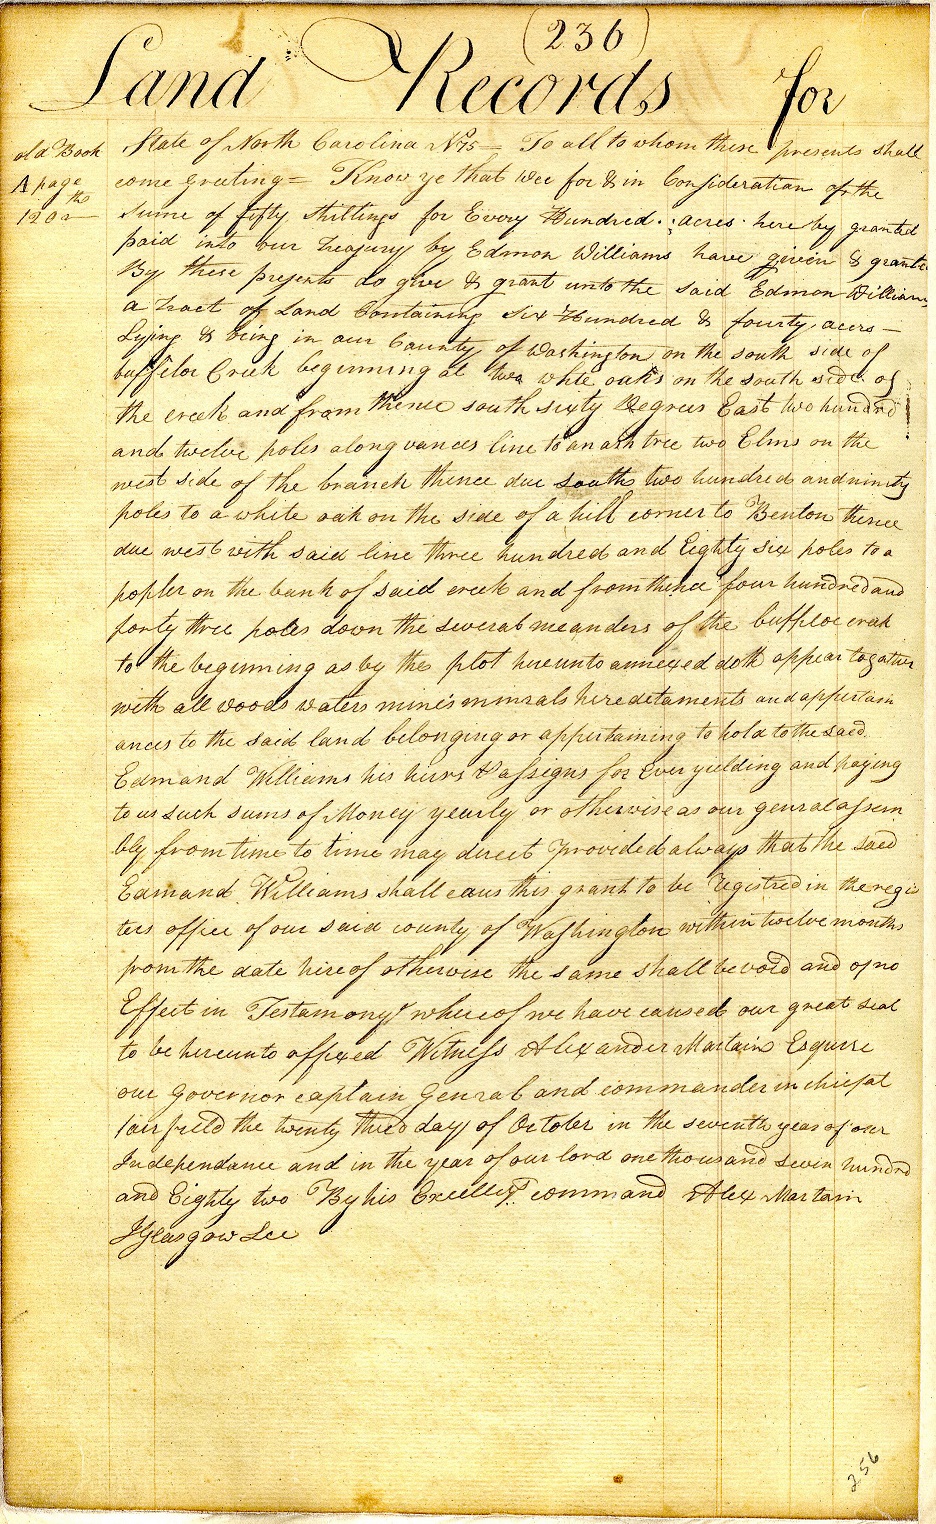 (236)
Land Records for
old Book
A page
120th
State of North Carolina No 75 = To all to whom these presents shall
come greeting = Know ye that wee for & in Consideration of the
sume of fifty shillings for Every Hundred acres here by granted
paid into our Treasury by Edmon Williams have given & granted
By these presents do give & grant unto the said Edmon Williams
a Tract of Land Containing Six Hundred & fourty acers —
Lying & being in our County of Washington on the south side of
buffelor Creek beginning at two white oaks on the south side of
the creek and from thence south sixty Degrees East two hundred
and twelve poles along vances line to an ash tree two Elms on the
west side of the branch thence due South two hundred and ninety
poles to a white oak on the side of a hill corner to Benton thence
due west with said line three hundred and Eighty six poles to a
popler on the bank of said creek and from thence four hundred and
forty three poles down the several meanders of the buffloe creek
to the beginning as by the plot hereunto annexed doth appear togather
with all woods waters mines minrals heredetaments and appertain
ances to the said land belonging or appertaining to hold to the said
Edmand Williams his heirs & assigns for Ever yielding and paying
to us such sums of Money yearly or otherwise as our genral assem
bly from time to time may direct provided always that the said
Edmand Williams shall caus this grant to be registred in the regis
ters office of our said county of Washington within twelve months
from the date hereof otherwise the same shall be void and of no
Effect in Testamony whereof we have caused our great seal
to be hereunto affixed Witness Alexander Martain Esquire
our governor captain genral and commander in chief at
fairfield the twenty third day of October in the seventh year of our
Independance and in the year of our lord one thousand seven hundred
and Eighty two By his Excellcy command Alex Martain
J Glasgow Sec
256